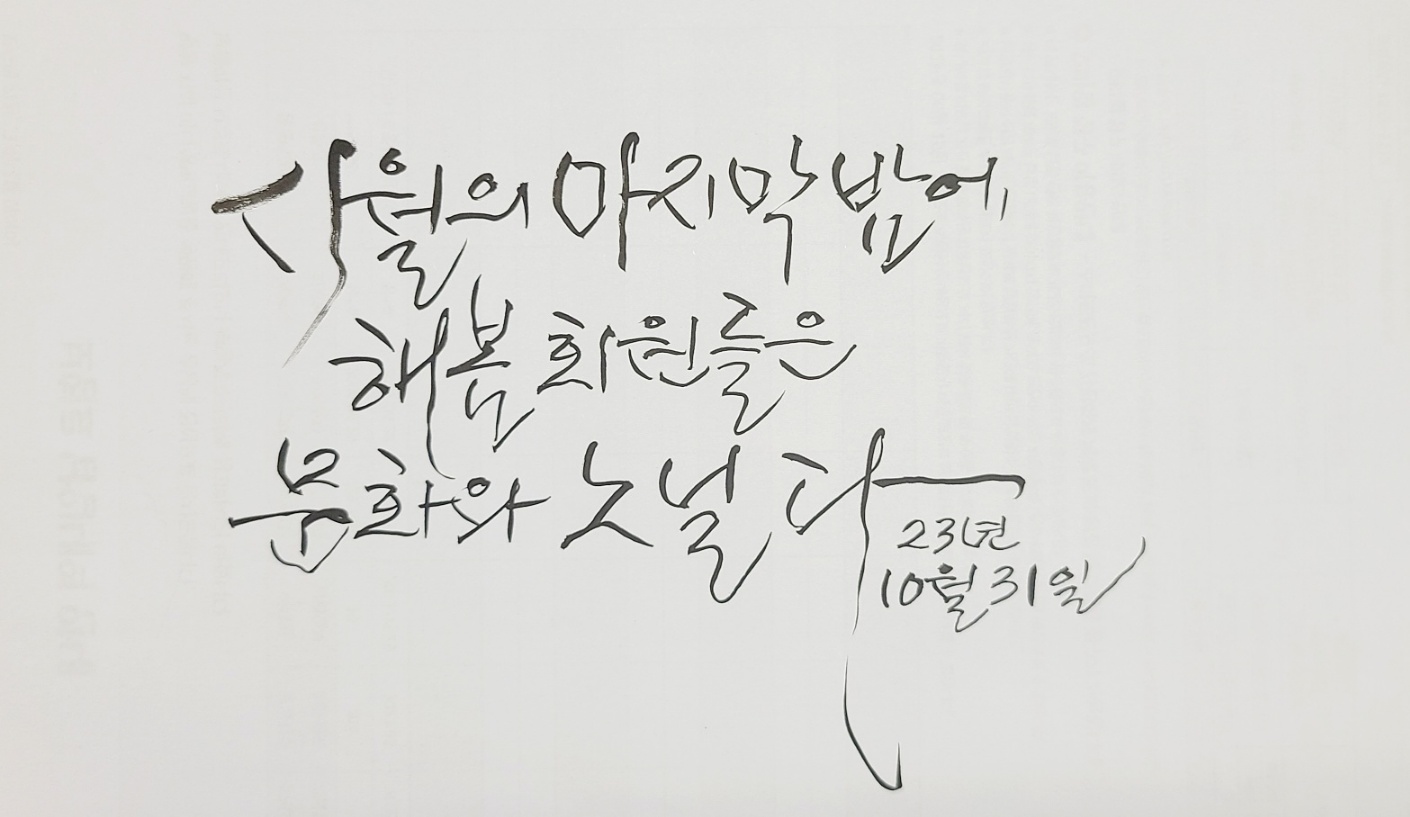 시월의 마지막 밤에
해봄 회원들은
문화와 노닐다
23년
10월 31일